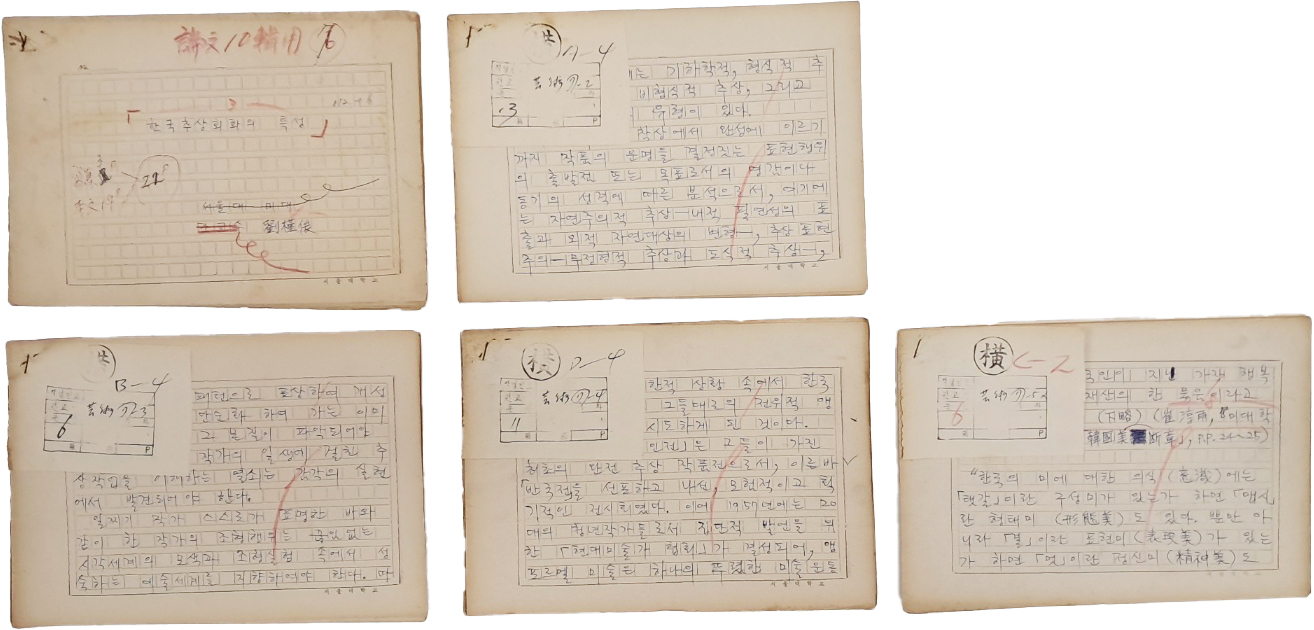 論文 10 輯用
「한국추상회화의 특성」
本文 19
서울대 미대
서울대학교
A-4
芸術 기-2
3
는 기하학적, 형식적 추
비형식적 추상, 그리고
유형이 있다.
착상에서 완성에 이르기
까지 작품의 운명을 결정짓는 표현행위
의 출발점 또는 목표로서의 영감이나
동기의 성격에 따른 분석으로서, 여기에
는 자연주의적 추상—내적 필연성의 표
출과 외적 자연대상의 변형—, 추상 표현
주의—무정형적 추상과 도식적 추상—,
서울대학교
B-4
芸術 기-3
6
패턴으로 표상하여 개성
단순화 하여 가는 의미
그 본질이 파악되어야
작가의 일생에 걸친 추
상작업을 이해하는 열쇠는 각각의 실현
에서 발견되어야 한다.
일찌기 작가 스스로가 표명한 바와
같이 한 작가의 조형행위는 끊임없는
시각세계의 모색과 조형실험 속에서 성
숙하는 예술세계를 지향하여야 한다. 따
서울대학교
D-4
芸術 기-4
11
한적 상황 속에서 한국
그들대로의 전위적 맹
시도하게 된 것이다.
인전」은 그들이 가진
최초의 단전 추상 작품전으로서, 이른바
「반국전을 선포하고 나선, 모험적이고 획
기적인 전시회였다. 이어 1957년에는 20
대의 청년작가들로서 집단적 발언을 위
한 「현대미술가 협회」가 결성되어, 앵
포르멜 미술의 하나의 뚜렷한 미술운동
橫
C-2
芸術
6
국인이 지닌 가장 행복
재산의 한 목음이라고
(下略) (崔淳雨, 「미대학
韓國美 断章」, P.P. 24~25)
"한국의 미에 대한 의식(意識)에는
「햇갈」이란 구성미가 있는가 하면 「맵시」
란 형태미 (形態美)도 있다. 뿐만 아
니라 「결」이란 표현미(表現美)가 있는
가 하면 「멋」이란 정신미(精神美)도